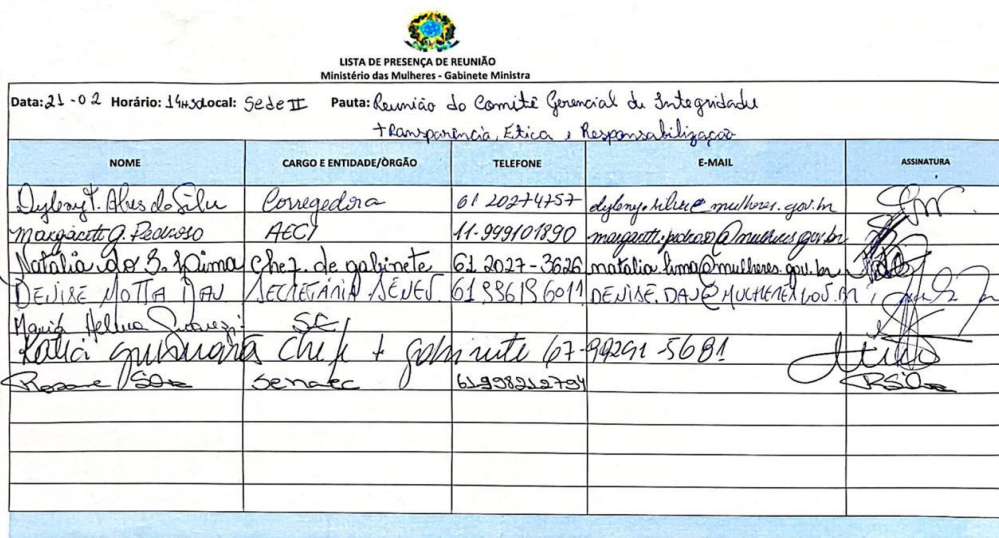 LISTA DE PRESENÇA DE REUNIÃO
Ministério das Mulheres - Gabinete Ministra
Data: 21-02 Horário: 14H30 Local: Sede II Pauta: Reunião do Comitê Gerencial de Integridade
Transparência, Etica e Responsabilização
NOME CARGO E ENTIDADE/ÒRGÃO TELEFONE E-MAIL ASSINATURA
Dyleny T. Alves da Silva Corregedora 61 20274757 dyleny.silva@mulheres.gov.br
Margarete G. Pedroso AECI 11-999101890 margarete.pedroso@mulheres.gov.br
Natalia do S. Lima Chef. de gabinete 61 2027-3626 natalia.lima@mulheres.gov.br
DENISE MOTTA DAU SECRETÁRIA SENEV. 61996196011 DENISE.DAU@MULHERES.GOV.BR
Maria Helena SE
Katia Guimarães Chefe gabinete 67-99291-5681
Rosane Silva Senaec 61998212794 RSilva